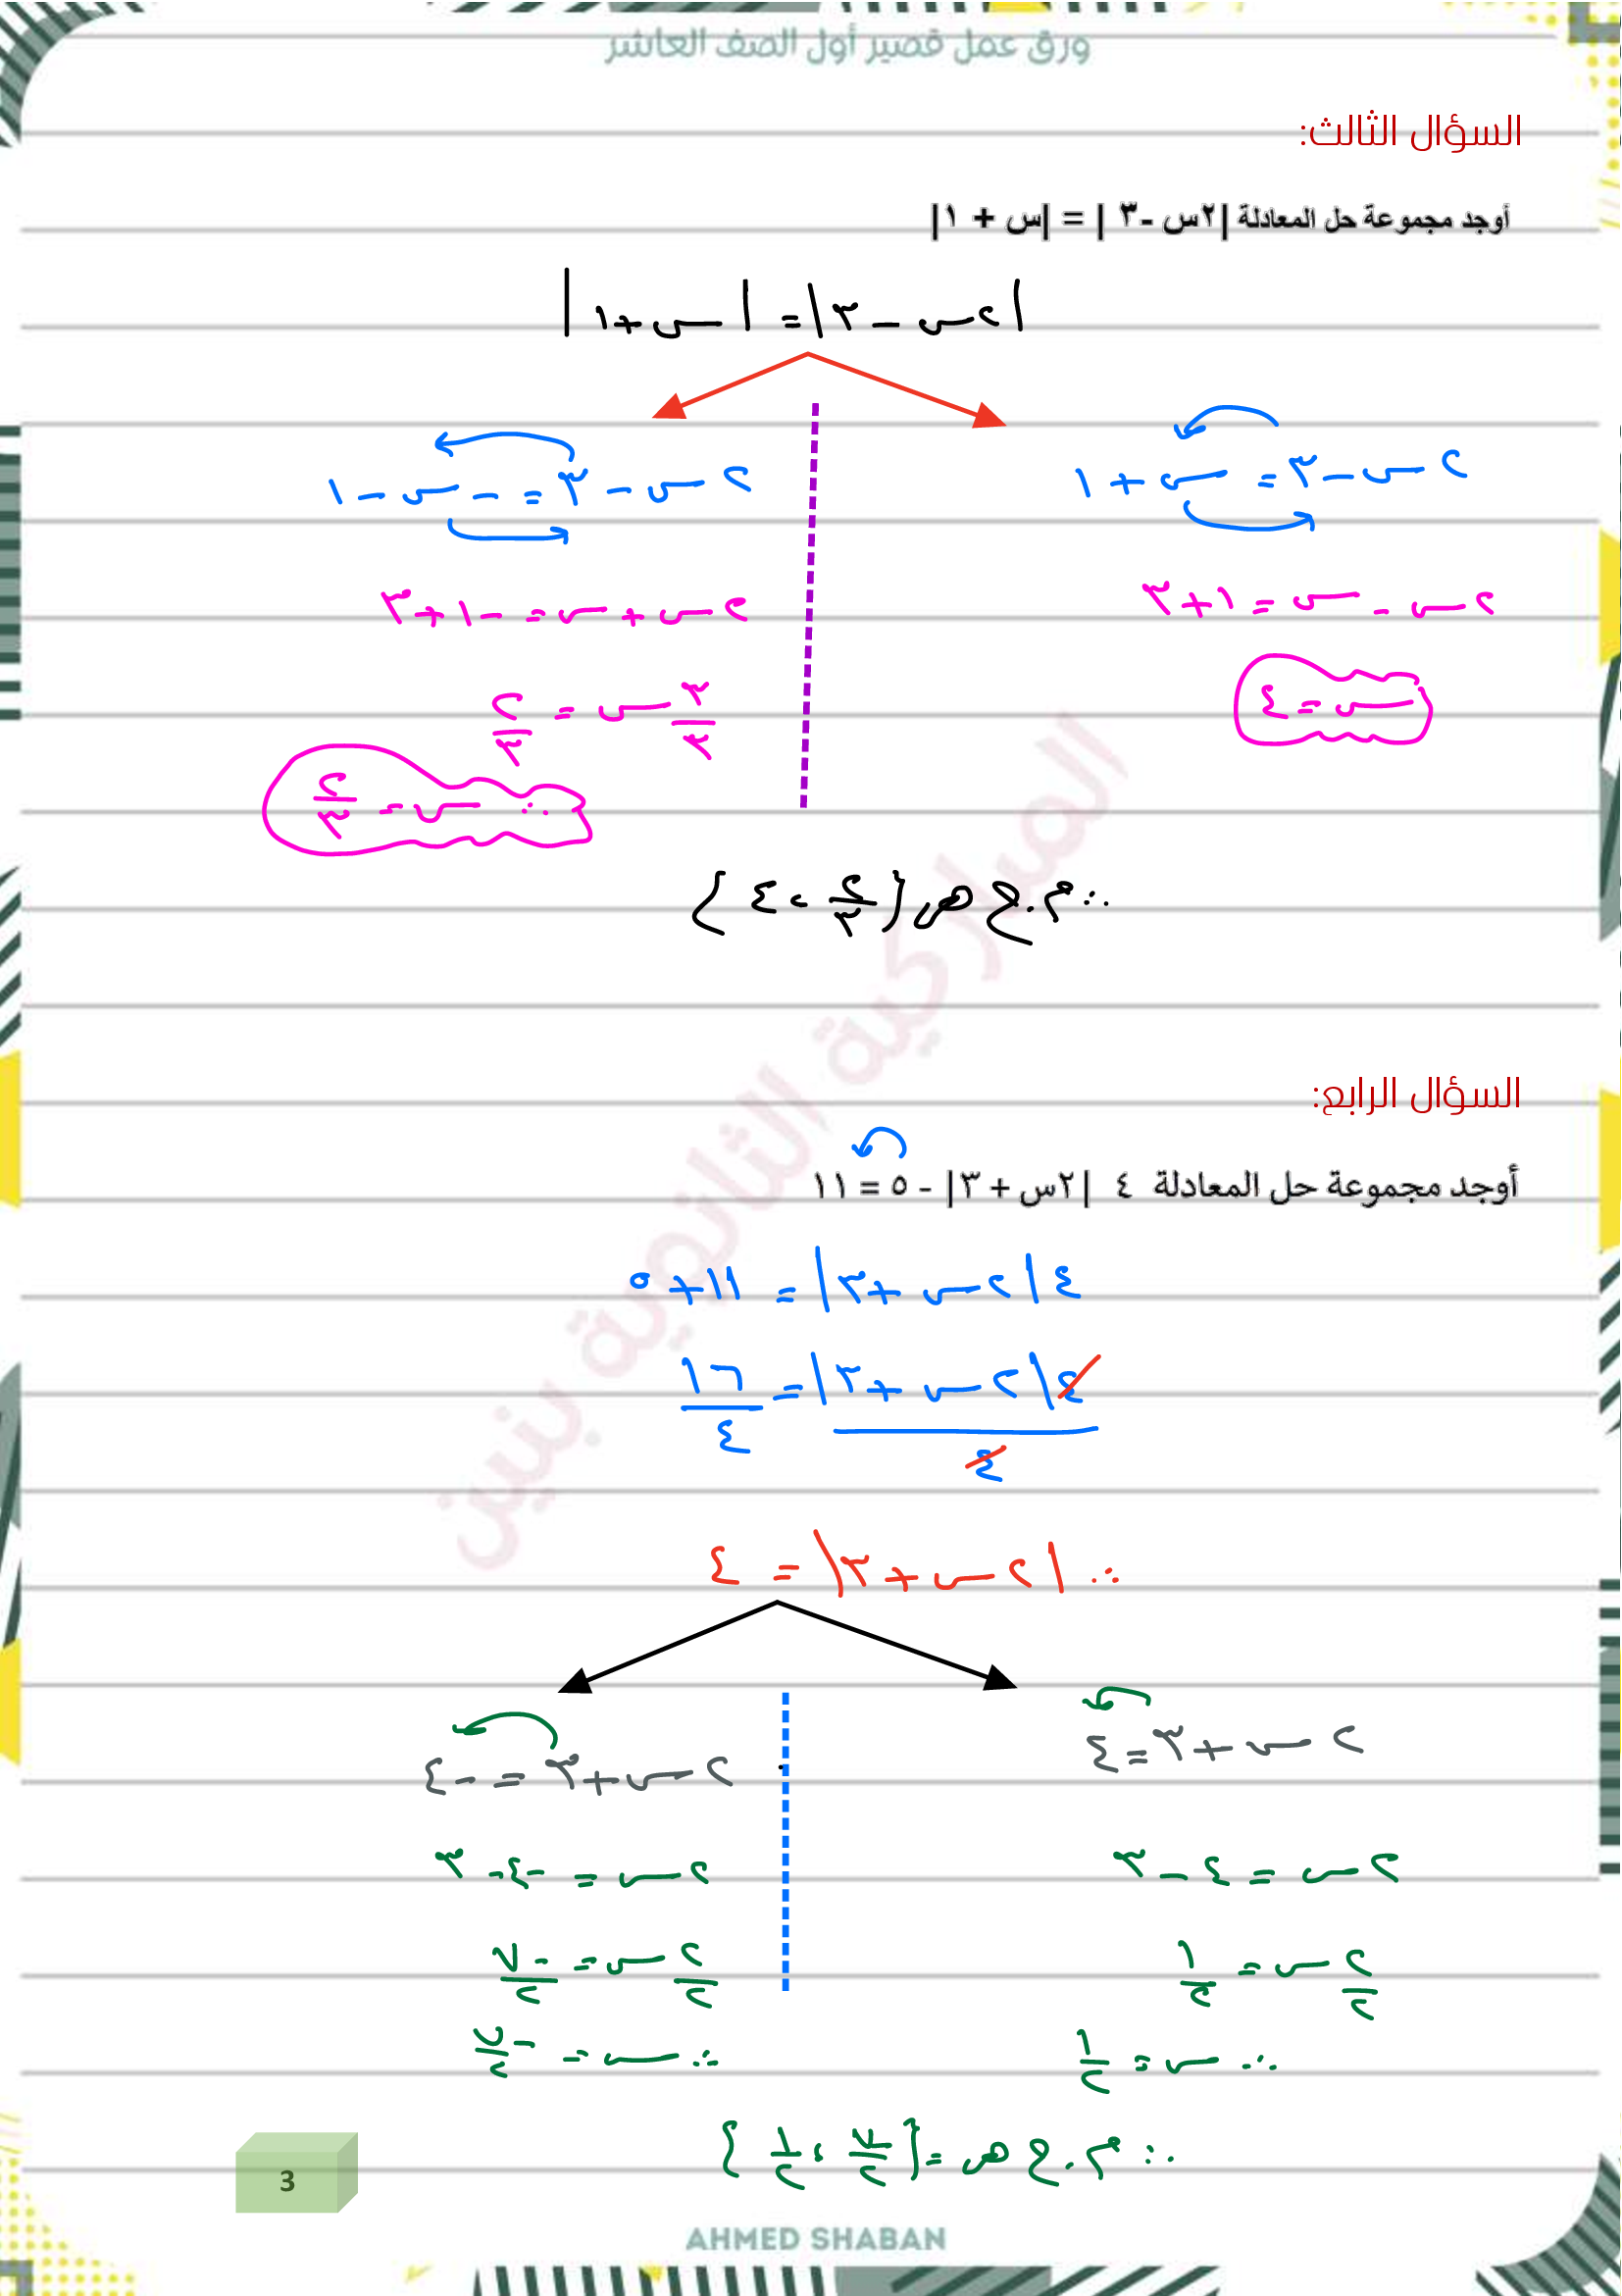 ورق عمل قصير أول الصف العاشر
السؤال الثالث:
أوجد مجموعة حل المعادلة |٢س -٣ | = |س + ١|
|٢س - ٣| = |س + ١|
٢س - ٣ = س + ١
٢س - س = ١ + ٣
س = ٤
٢س - ٣ = - س - ١
٢س + س = - ١ + ٣
٣/٣ س = ٢/٣
∴ س = ٢/٣
∴ م.ح هى {٢/٣ ، ٤}
السؤال الرابع:
أوجد مجموعة حل المعادلة ٤ |٢س + ٣| - ٥ = ١١
٤ |٢س + ٣| = ١١ + ٥
٤ |٢س + ٣| / ٤ = ١٦ / ٤
∴ |٢س + ٣| = ٤
٢س + ٣ = ٤
٢س = ٤ - ٣
٢/٢ س = ١/٢
∴ س = ١/٢
٢س + ٣ = - ٤
٢س = -٤ - ٣
٢/٢ س = -٧/٢
∴ س = -٧/٢
∴ م.ح هى = {-٧/٢ ، ١/٢}
3
AHMED SHABAN
المباركية الثانوية بنين